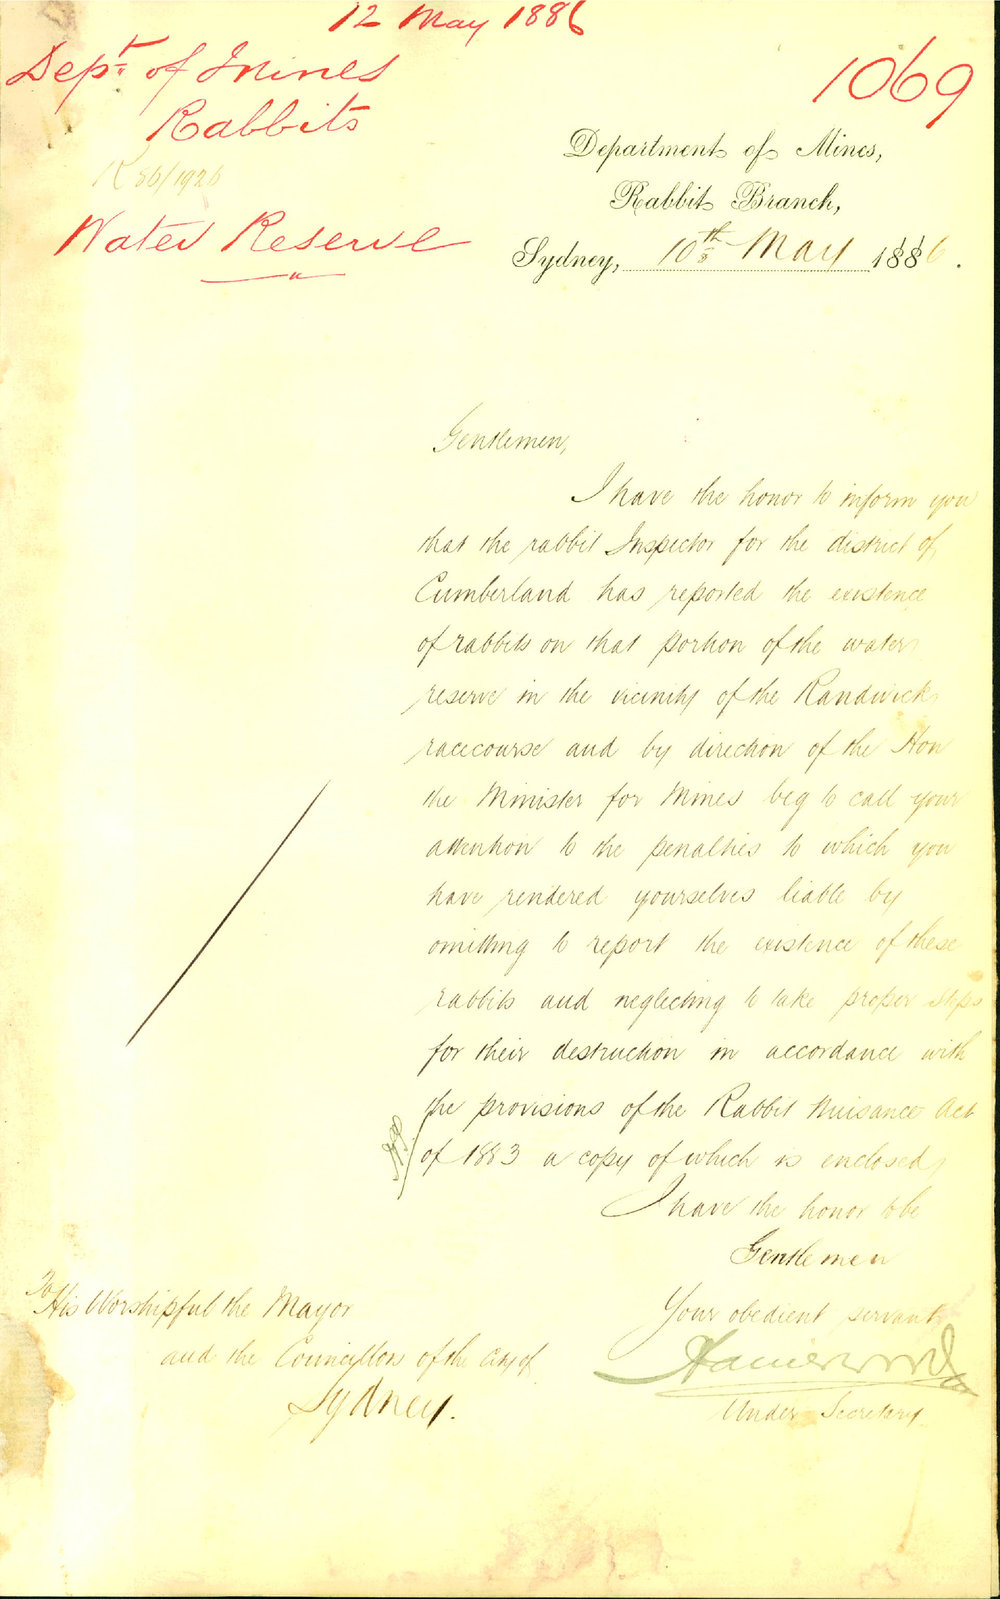 12 May 1886
Dept. of Mines
Rabbits
1069
R 86/1926
Water Reserve
Department of Mines,
Rabbit Branch,
Sydney, 10th May 1886.
Gentlemen,
I have the honor to inform you
that the rabbit Inspector for the district of
Cumberland has reported the existence
of rabbits on that portion of the water
reserve in the vicinity of the Randwick
racecourse and by direction of the Hon
the Minister for Mines beg to call your
attention to the penalties to which you
have rendered yourselves liable by
omitting to report the existence of these
rabbits and neglecting to take proper steps
for their destruction in accordance with
the provisions of the Rabbit Nuisance Act
of 1883 a copy of which is enclosed,
I have the honor to be
Gentlemen
Your obedient servant
Under Secretary.
To His Worshipful the Mayor
and the Councillors of the City of
Sydney.